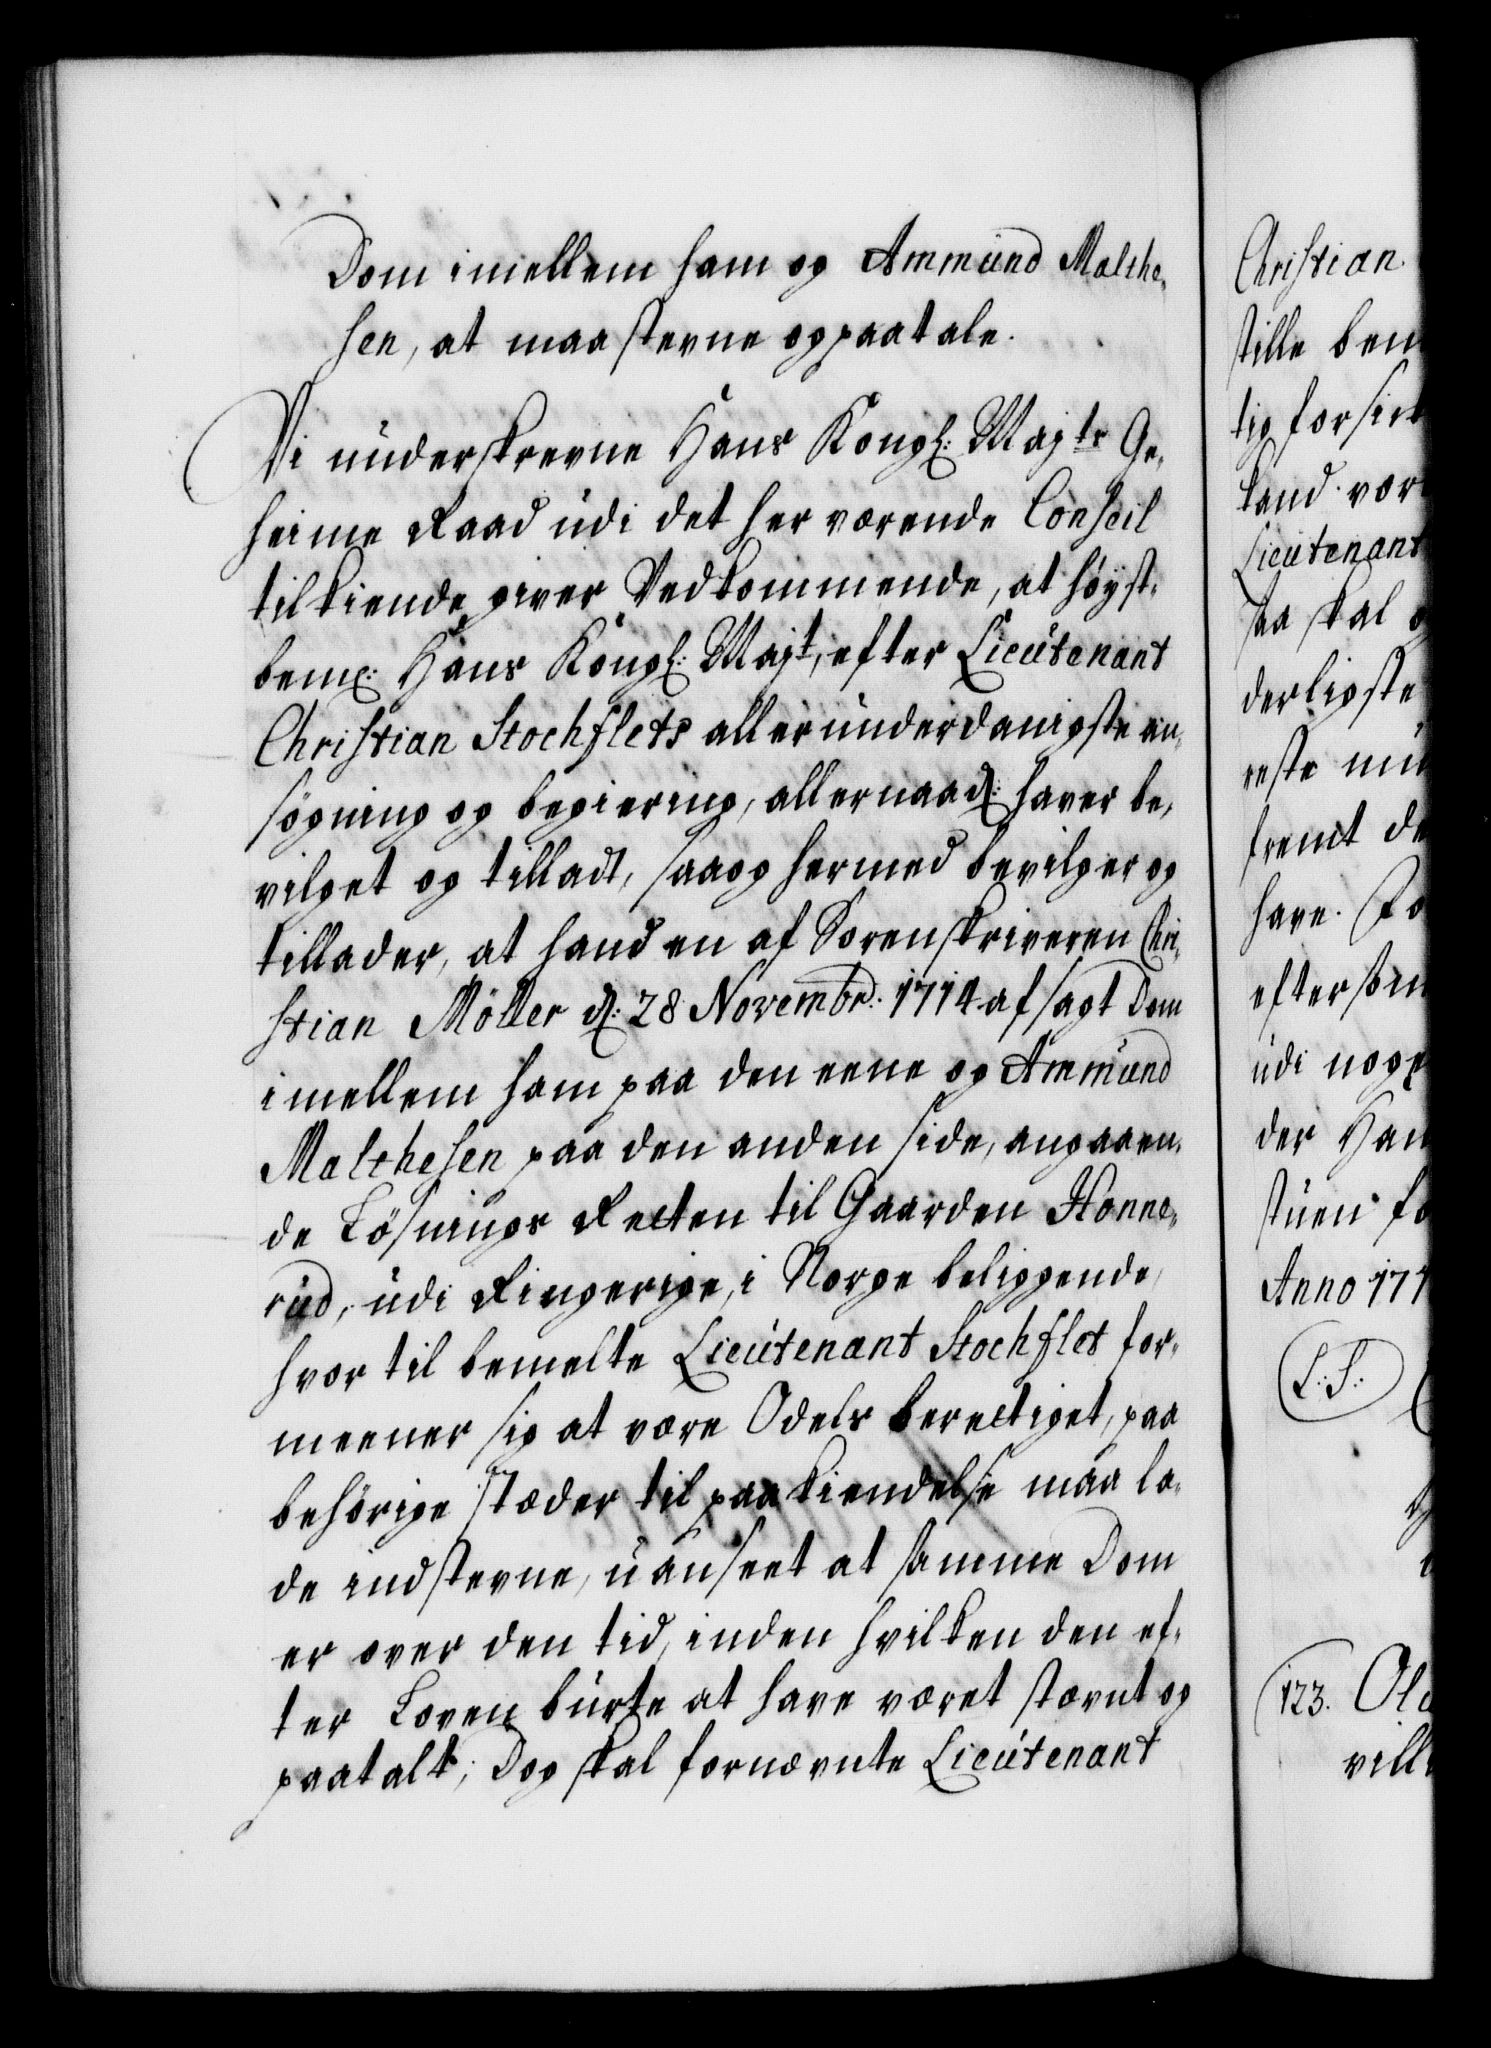 Dom imellem ham og Ammund Malthe-
sen, at maa stevne og paatale.
Vi underskrevne Hans Kongl: Majts Ge-
heime Raad udi det her værende Conseil
tilkiende giver Vedkommende, at høyst-
bemt: Hans Kongl: Majt, efter Lieutenant
Christian Stochflets allerunderdanigste an-
søgning og begiering, allernaad: haver be-
vilget og tilladt, saa og hermed bevilger og
tillader, at hand en af Sorenskriveren Chri-
stian Möller d: 28 Novembr: 1714 afsagt Dom
imellem ham paa den eene og Ammund
Malthesen paa den anden side, angaaen-
de Løsnings Retten til Gaarden Honne-
rud, udi Ringerige, i Norge beliggende,
hvor til bemelte Lieutenant Stochflet for-
meener sig at være Odels berettiget, paa
behörige stæder til paakiendelse maa la-
de indstevne, uanseet at samme Dom
er over den tid, inden hvilken den ef-
ter Loven burte at have været stævnt og
paatalt; Dog skal fornævnte Lieutenant
Christian
stille
tig
Land
Lieutenant
saa skal
derligste
reste
fremt
have.
udi
der
Anno 171
L: S:
123.